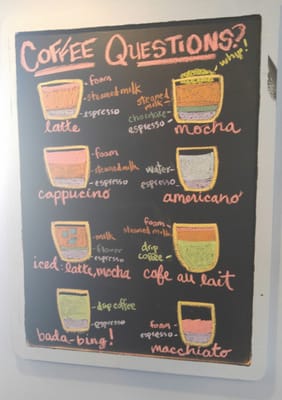 COFFEE QUESTIONS?
whip!
foam
steamed milk
espresso
latte
steamed
milk
chocolate
espresso
mocha
foam
steamed milk
espresso
cappucino
water
espresso
americano
milk
flavor
espresso
iced latte, mocha
foam
steamed milk
drip
coffee
cafe au lait
drip coffee
espresso
bada-bing!
foam
espresso
macchiato